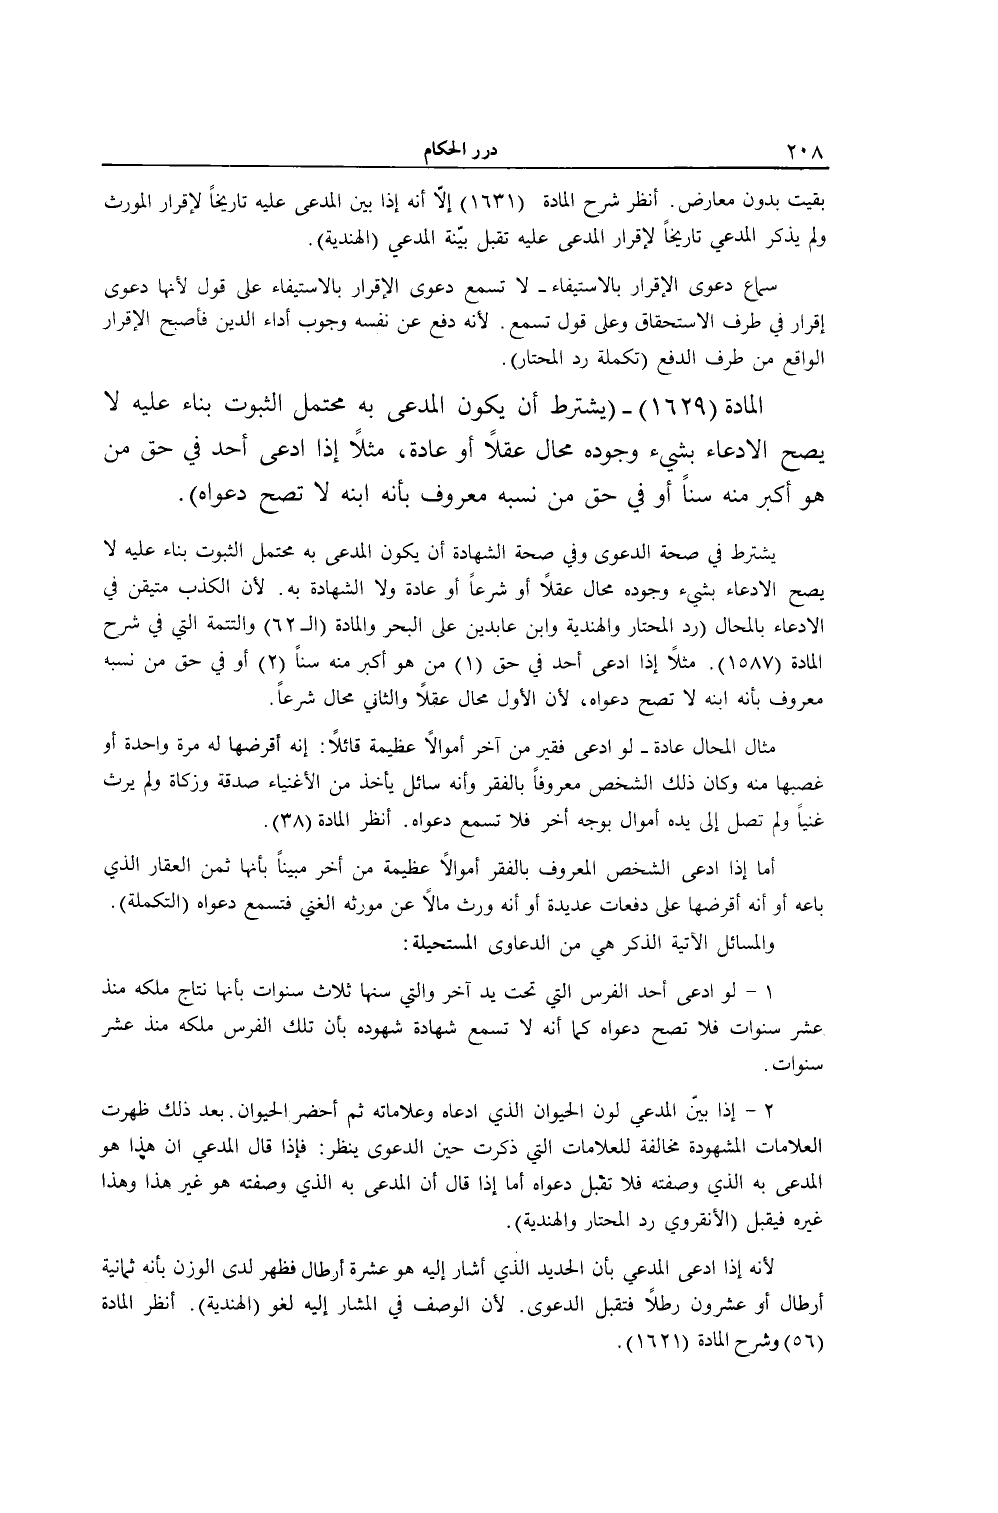 ٢٠٨ درر الحكام
بقيت بدون معارض. أنظر شرح المادة (١٦٣١) إلّا أنه إذا بين المدعى عليه تاريخاً لإقرار المورث
ولم يذكر المدعي تاريخاً لإقرار المدعى عليه تقبل بيّنة المدعي (الهندية).
سماع دعوى الإقرار بالاستيفاء - لا تسمع دعوى الإقرار بالاستيفاء على قول لأنها دعوى
إقرار في طرف الاستحقاق وعلى قول تسمع. لأنه دفع عن نفسه وجوب أداء الدين فأصبح الإقرار
الواقع من طرف الدفع (تكملة رد المحتار).
المادة (١٦٢٩) - (يشترط أن يكون المدعى به محتمل الثبوت بناء عليه لا
يصح الادعاء بشيء وجوده محال عقلاً أو عادة، مثلاً إذا ادعى أحد في حق من
هو أكبر منه سناً أو في حق من نسبه معروف بأنه ابنه لا تصح دعواه).
يشترط في صحة الدعوى وفي صحة الشهادة أن يكون المدعى به محتمل الثبوت بناء عليه لا
يصح الادعاء بشيء وجوده محال عقلاً أو شرعاً أو عادة ولا الشهادة به. لأن الكذب متيقن في
الادعاء بالمحال (رد المحتار والهندية وابن عابدين على البحر والمادة (الـ ٦٢) والتتمة التي في شرح
المادة (١٥٨٧). مثلاً إذا ادعى أحد في حق (١) من هو أكبر منه سناً (٢) أو في حق من نسبه
معروف بأنه ابنه لا تصح دعواه، لأن الأول محال عقلاً والثاني محال شرعاً.
مثال المحال عادة - لو ادعى فقير من آخر أموالاً عظيمة قائلاً: إنه أقرضها له مرة واحدة أو
غصبها منه وكان ذلك الشخص معروفاً بالفقر وأنه سائل يأخذ من الأغنياء صدقة وزكاة ولم يرث
غنياً ولم تصل إلى يده أموال بوجه أخر فلا تسمع دعواه. أنظر المادة (٣٨).
أما إذا ادعى الشخص المعروف بالفقر أموالاً عظيمة من أخر مبيناً بأنها ثمن العقار الذي
باعه أو أنه أقرضها على دفعات عديدة أو أنه ورث مالاً عن مورثه الغني فتسمع دعواه (التكملة).
والمسائل الآتية الذكر هي من الدعاوى المستحيلة:
١ - لو ادعى أحد الفرس التي تحت يد آخر والتي سنها ثلاث سنوات بأنها نتاج ملكه منذ
عشر سنوات فلا تصح دعواه كما أنه لا تسمع شهادة شهوده بأن تلك الفرس ملكه منذ عشر
سنوات.
٢ - إذا بيّن المدعي لون الحيوان الذي ادعاه وعلاماته ثم أحضر الحيوان. بعد ذلك ظهرت
العلامات المشهودة مخالفة للعلامات التي ذكرت حين الدعوى ينظر: فإذا قال المدعي ان هذا هو
المدعى به الذي وصفته فلا تقبل دعواه أما إذا قال أن المدعى به الذي وصفته هو غير هذا وهذا
غيره فيقبل (الأنقروي رد المحتار والهندية).
لأنه إذا ادعى المدعي بأن الحديد الذي أشار إليه هو عشرة أرطال فظهر لدى الوزن بأنه ثمانية
أرطال أو عشرون رطلاً فتقبل الدعوى. لأن الوصف في المشار إليه لغو (الهندية). أنظر المادة
(٥٦) وشرح المادة (١٦٢١).